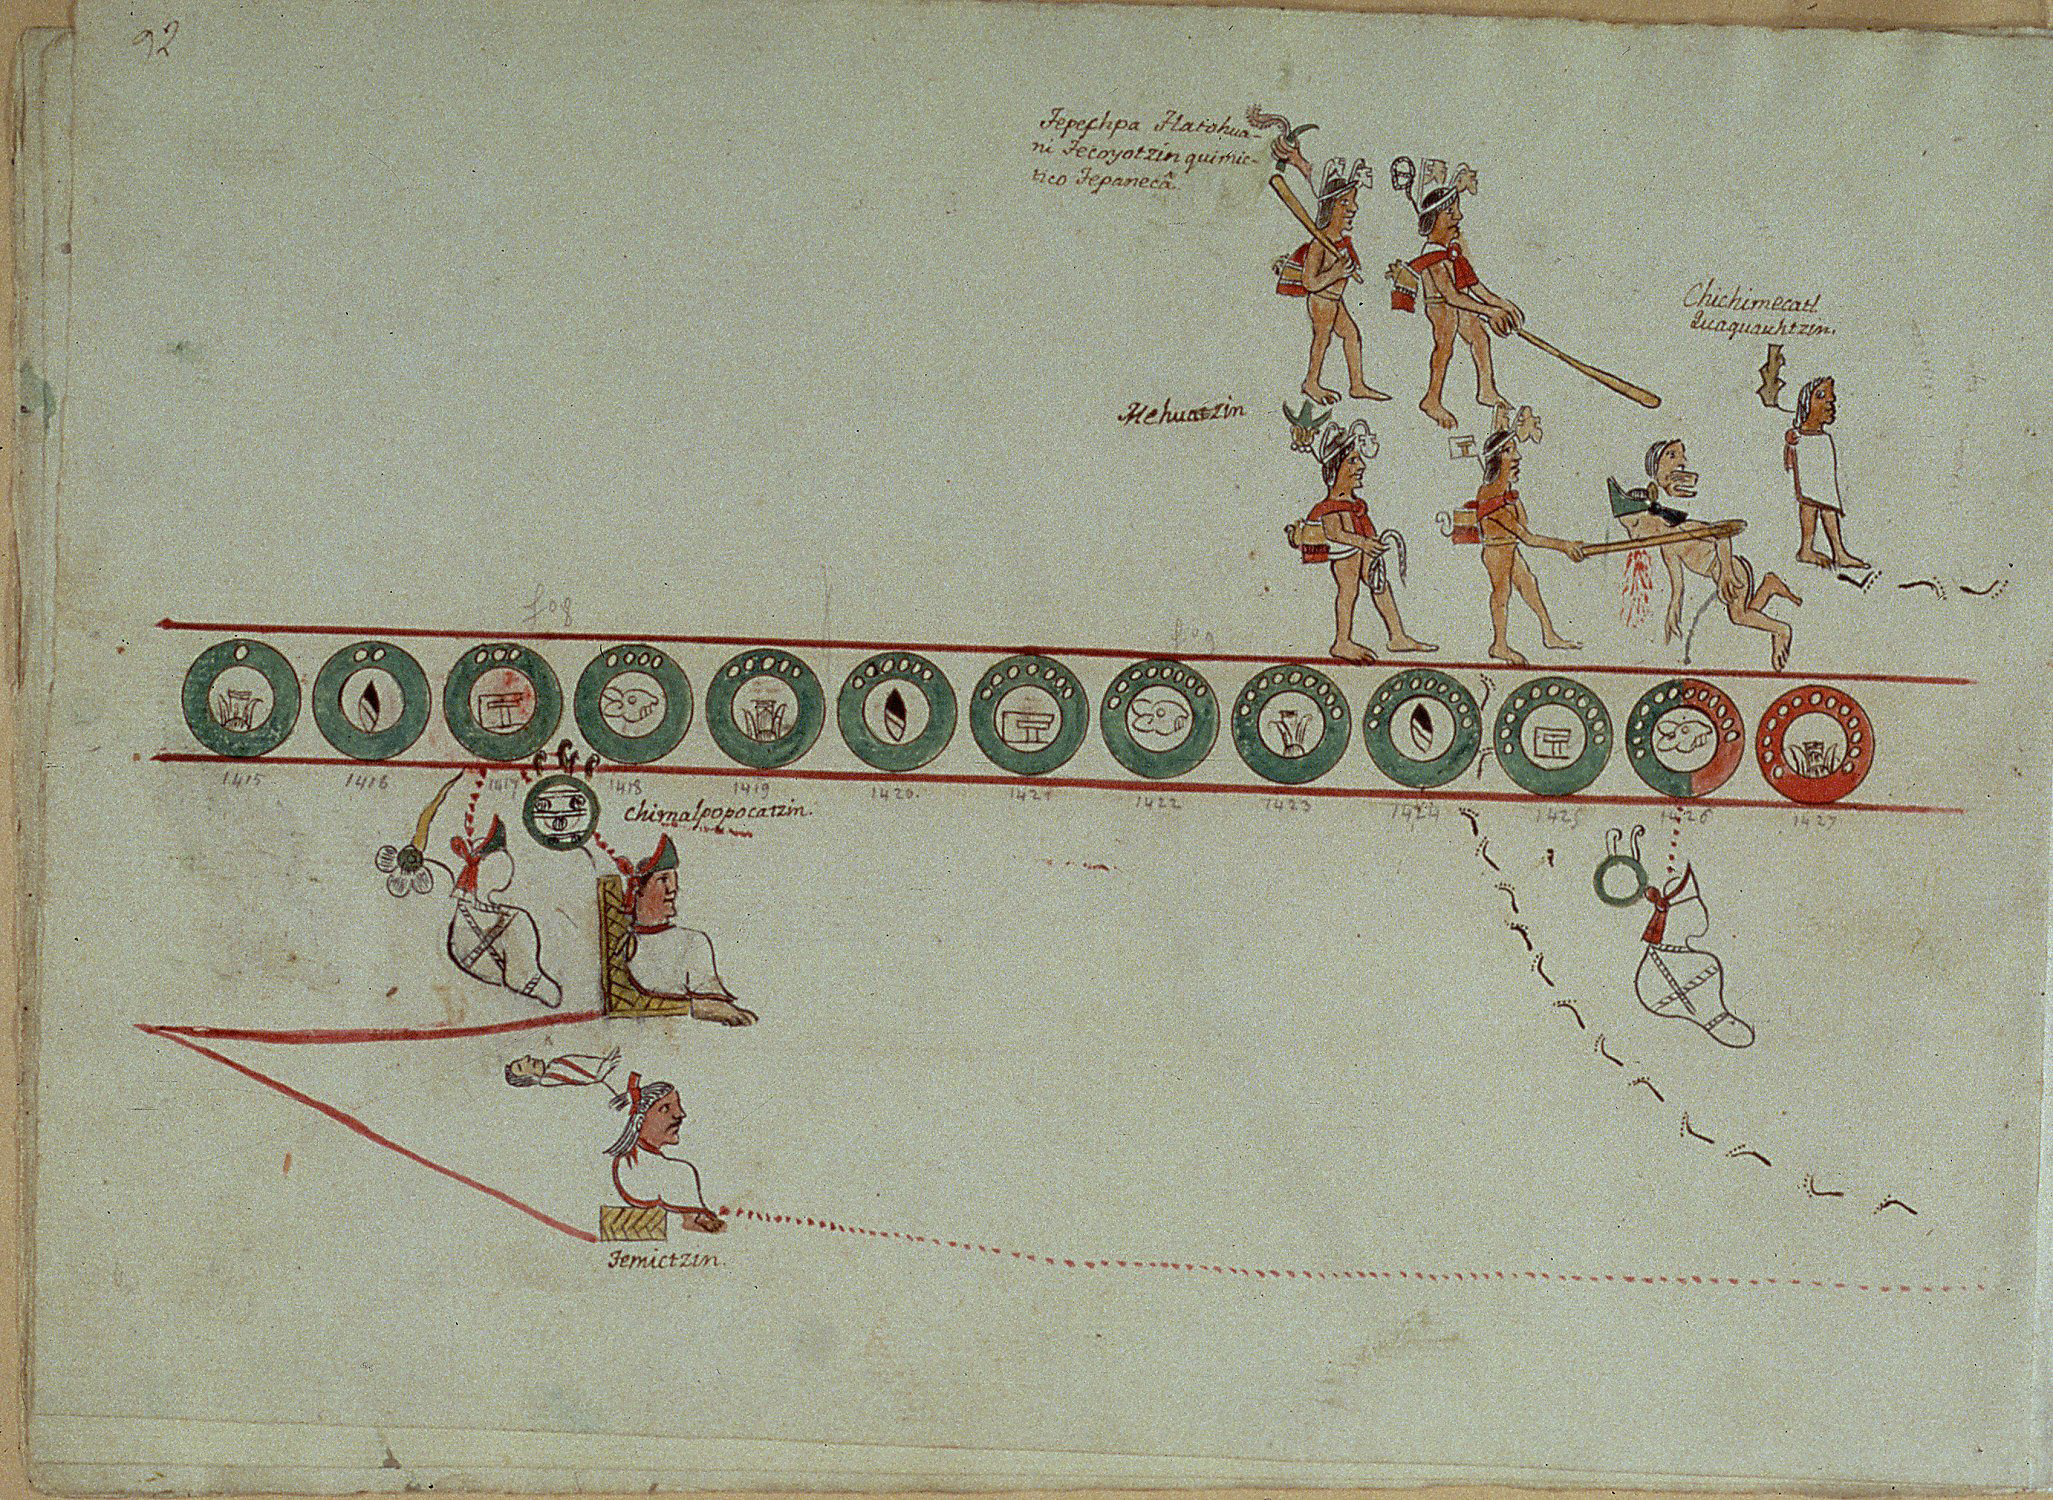 92
Tepechpa Tlatohua-
ni Tecoyotzin quimic-
tico Tepanecâ.
Chichimecatl
Quaquauhtzin.
Hehuatzin
fo 8
fo 9
1415 1416 1417 1418 1419 1420. 1421 1422 1423 1424 1425 1426 1427
Chimalpopocatzin.
Temictzin.